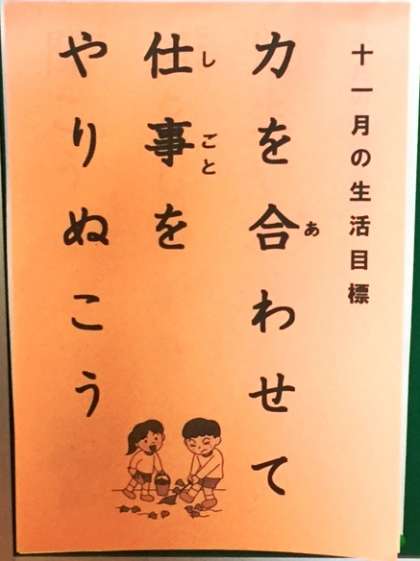 十一月の生活目標
力を合わせて
仕事を
やりぬこう
あ
しごと